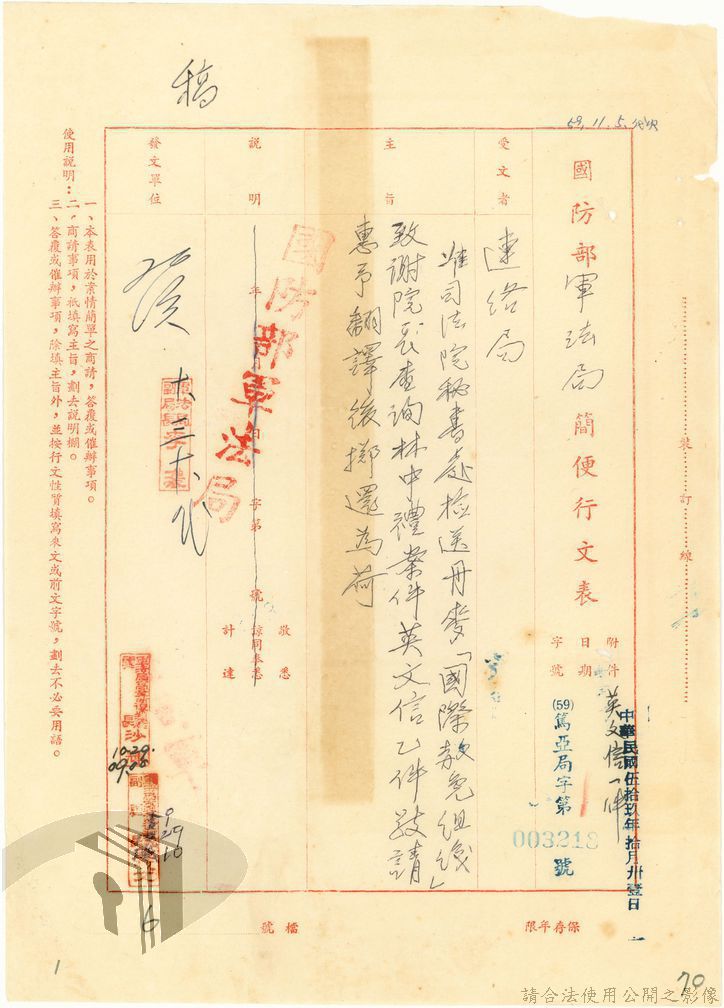 59.11.5.
裝訂線
國防部軍法局簡便行文表
附件 英文信一件
日期 中華民國伍拾玖年拾月卅壹日
字號 (59)篤亞局字第003218號
受文者
連絡局
主旨
准司法院秘書處檢送丹麥「國際赦免組織」
致謝院長查詢林中禮案件英文信乙件敬請
惠予翻譯後擲還為荷
說明
年 月 日 字第 號
敬悉
諒同奉悉
計達
國防部軍法局
發文單位
稿
使用說明：
一、本表用於案情簡單之商請，答覆或催辦事項。
二、商請事項，祇填寫主旨，劃去說明欄。
三、答覆或催辦事項，除填主旨外，並按行文性質填寫來文或前文字號，劃去不必要用語。
10.29.
09.08
保存年限
檔號
6
1
70
請合法使用公開之影像